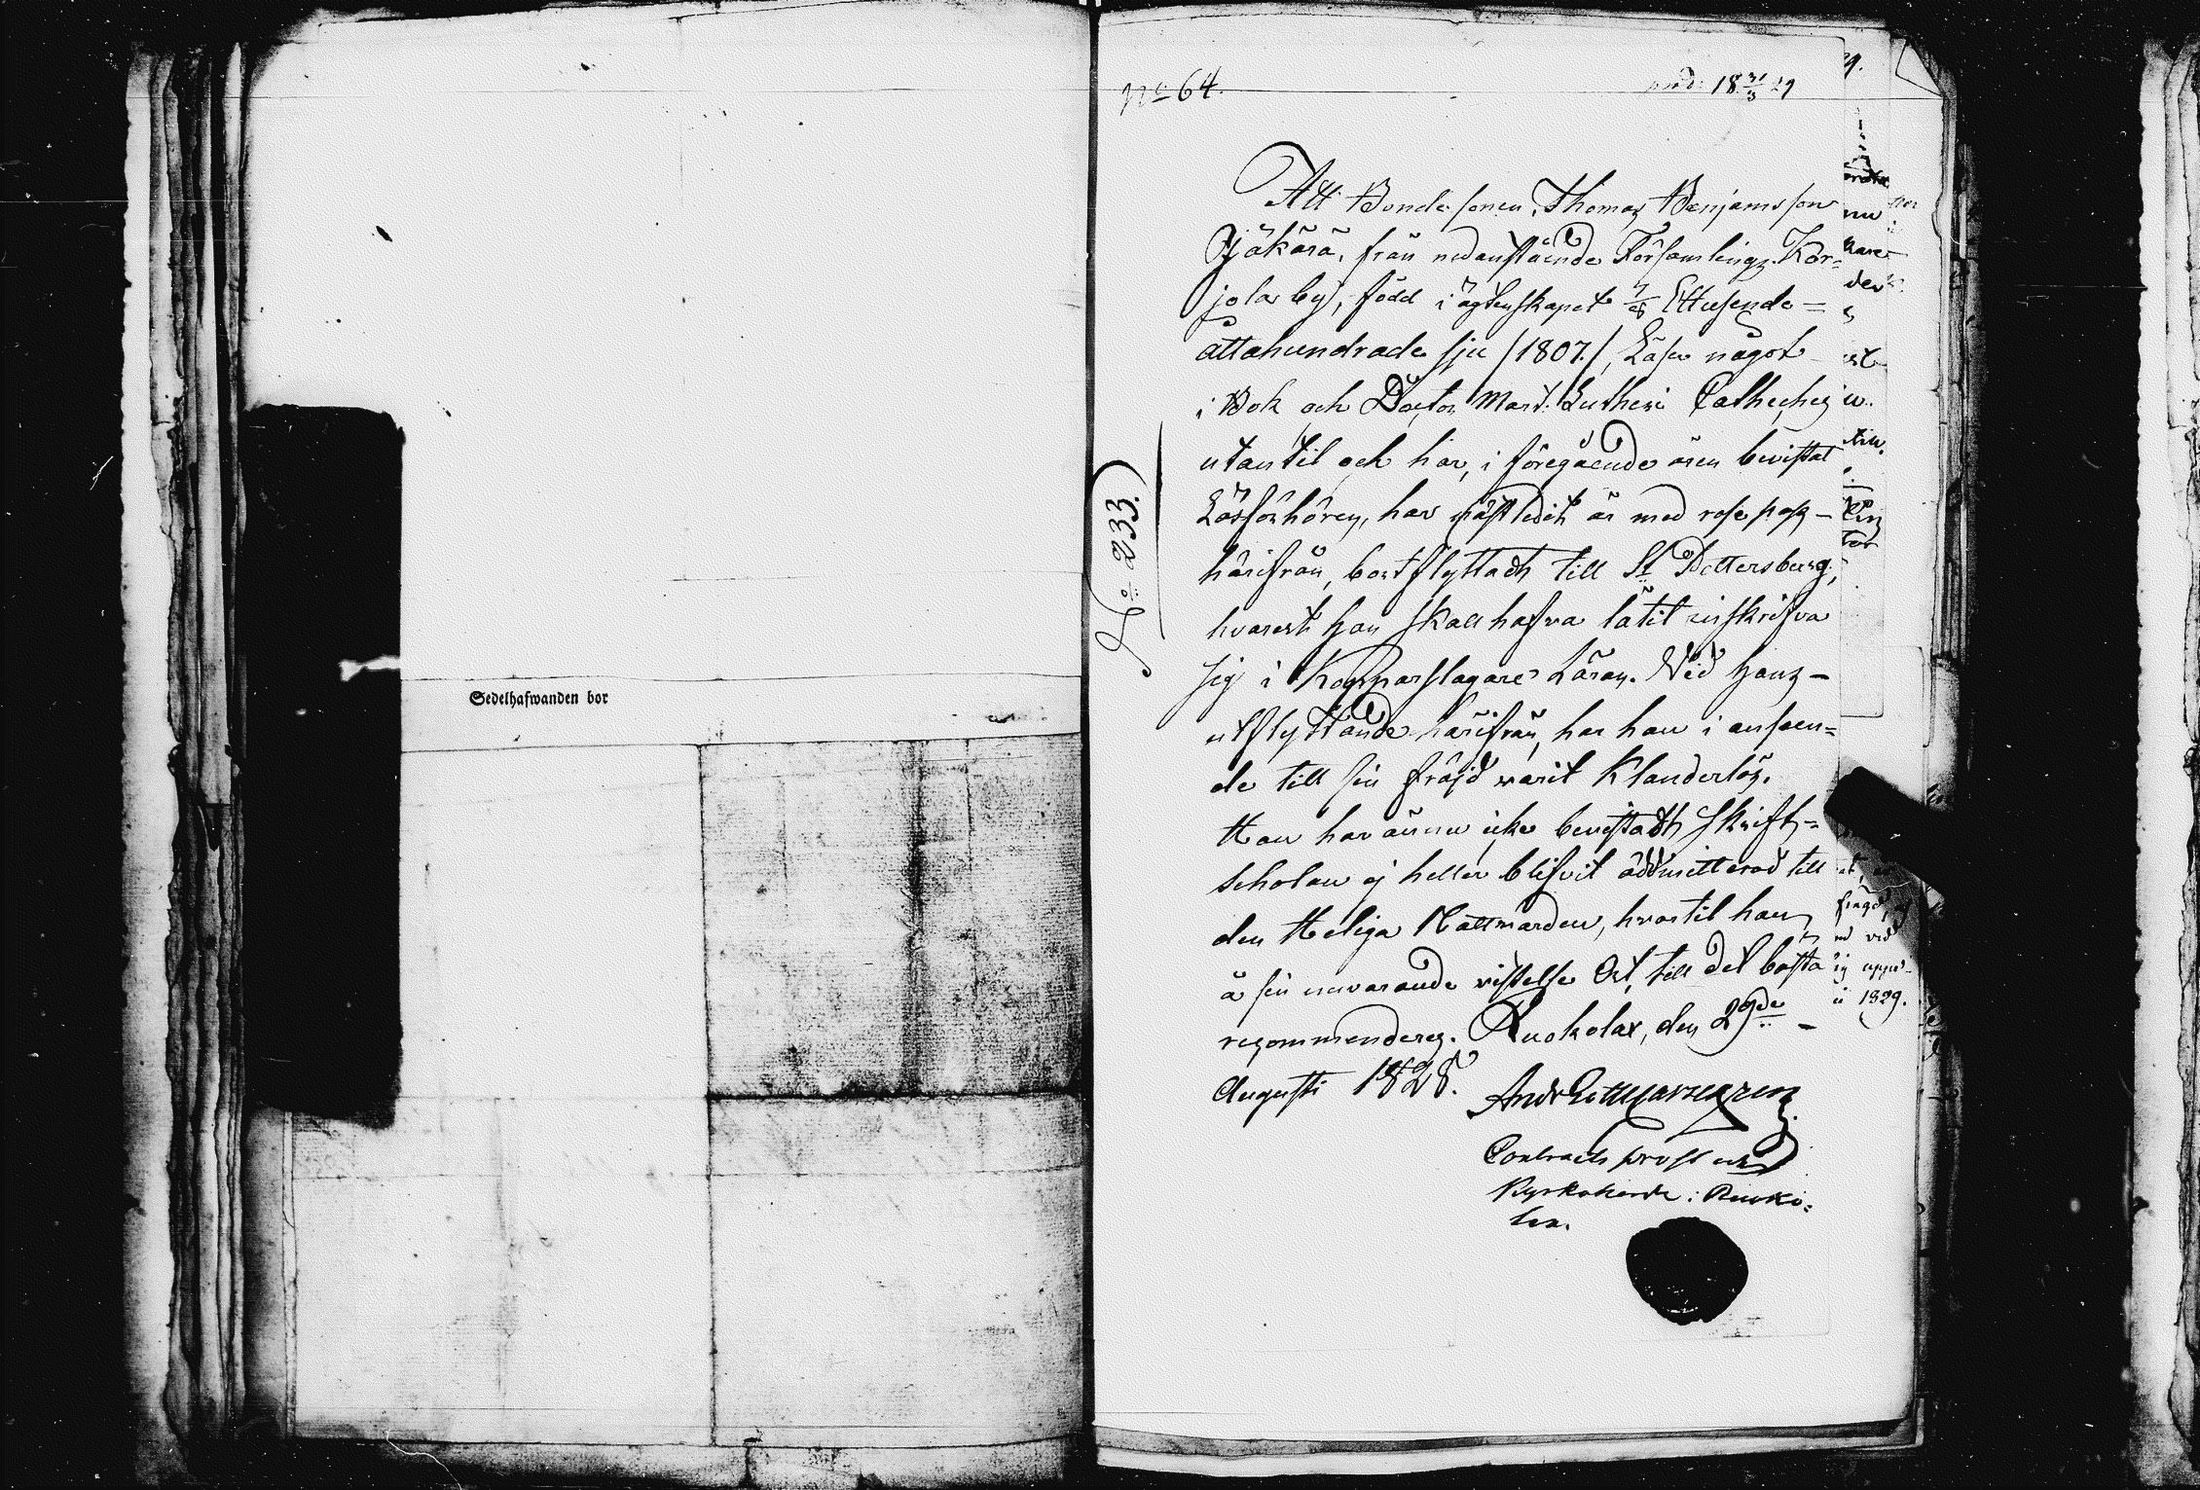 Sedelhafwanden bor
No 64.
prod: 18 31/3 29
No 233.)
Att Bonde sonen, Thomas Benjamsson
Jäkärä, från nedanstående Församlings Kor=
jola by, född i ägtenskapet 7/8 Ettusende=
åttahundrade sju /1807./, Läser något
i Bok och Doctor Mart: Lutheri Catheches
utantil och har, i föregående åren bevistat
Läsförhören, har sistledit år med rese pass—
härifrån, bortflyttadt till St Pettersburg,
hvarest han skall hafva låtit inskrifva
sig i Kopparslagare Läran. Vid hans—
utflyttande härifrån, har han i anseen=
de till sin fräjd warit Klanderlös.
Han har ännu icke bevistadt Skrift=
scholan ej heller blifvit ädmitterad till
den Heliga Nattwarden, hvartil han,
å sin nuvarande vistelse Ort, till det bästa
recommenderes. Ruokolax, den 29de —
Augusti 1828.
Contracts prost och
Kyrkoherde i Ruoko=
lax.
frågd
ed vid
1829.